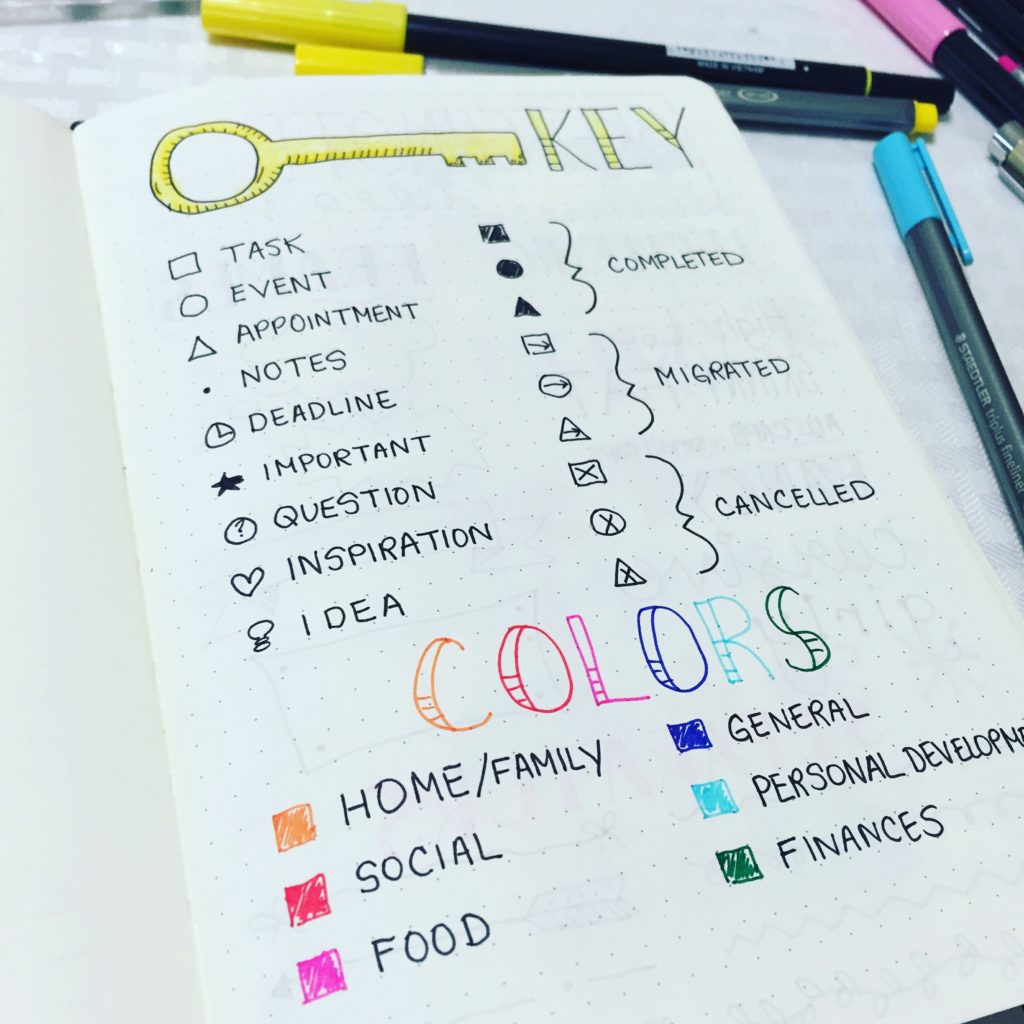 KEY
TASK
EVENT
APPOINTMENT
NOTES
DEADLINE
IMPORTANT
? QUESTION
INSPIRATION
IDEA
COMPLETED
MIGRATED
CANCELLED
COLORS
HOME/FAMILY
SOCIAL
FOOD
GENERAL
PERSONAL DEVELOPME
FINANCES
STAEDTLER triplus fineliner